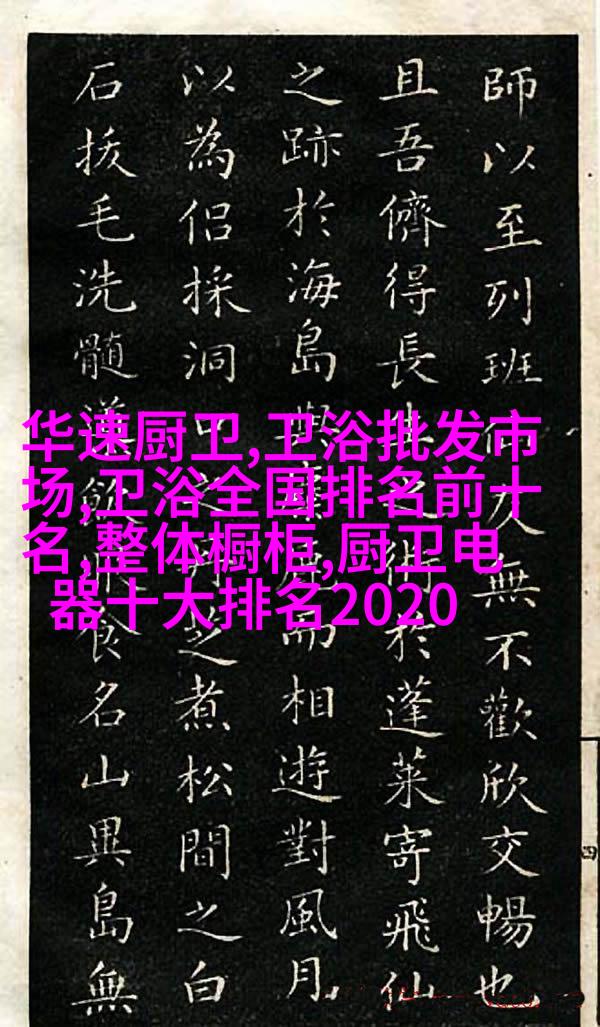 師以至列班仙友無不歡欣交暢也
且吾儕得長生之術於蓬萊寄飛仙
之跡於海島與而相遊對風月
以為侶採洞口之之煮松間之白
石拔毛洗髓食名山異島無
华速厨卫,卫浴批发市
场,卫浴全国排名前十
名,整体橱柜,厨卫电
器十大排名2020